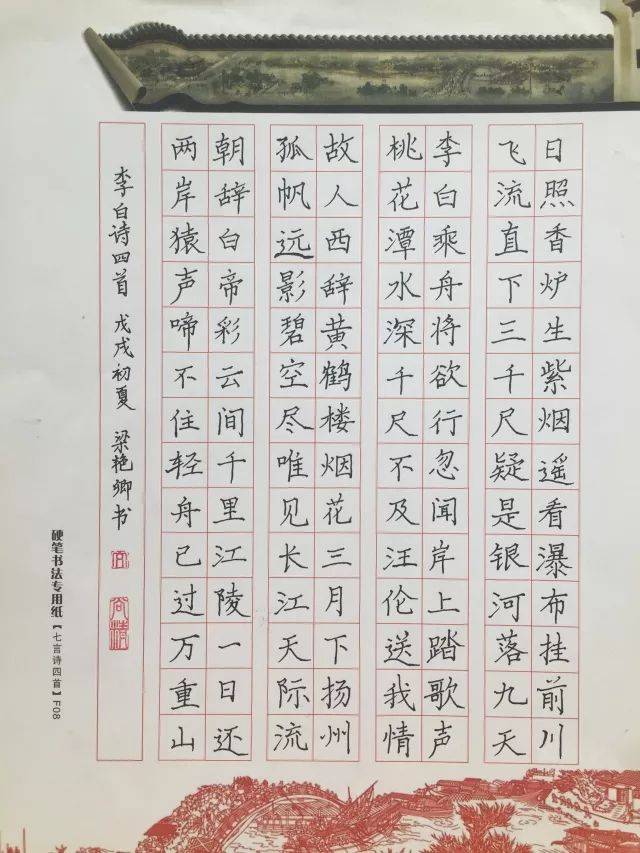 日照香炉生紫烟遥看瀑布挂前川
飞流直下三千尺疑是银河落九天
李白乘舟将欲行忽闻岸上踏歌声
桃花潭水深千尺不及汪伦送我情
故人西辞黄鹤楼烟花三月下扬州
孤帆远影碧空尽唯见长江天际流
朝辞白帝彩云间千里江陵一日还
两岸猿声啼不住轻舟已过万重山
李白诗四首 戊戌初夏 梁艳卿书
硬笔书法专用纸【七言诗四首】F08